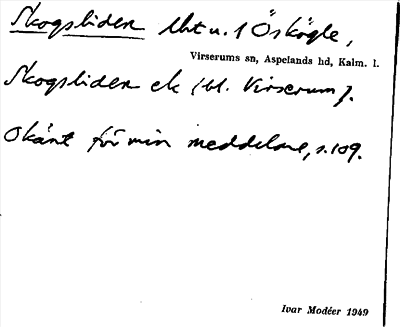 Skogsliden lht u. 1 Öskögle,
Virserums sn, Aspelands hd, Kalm. l.
Skogsliden ek (bl. Virserum).
Okänt för min meddelare, s. 109.
Ivar Modéer 1949